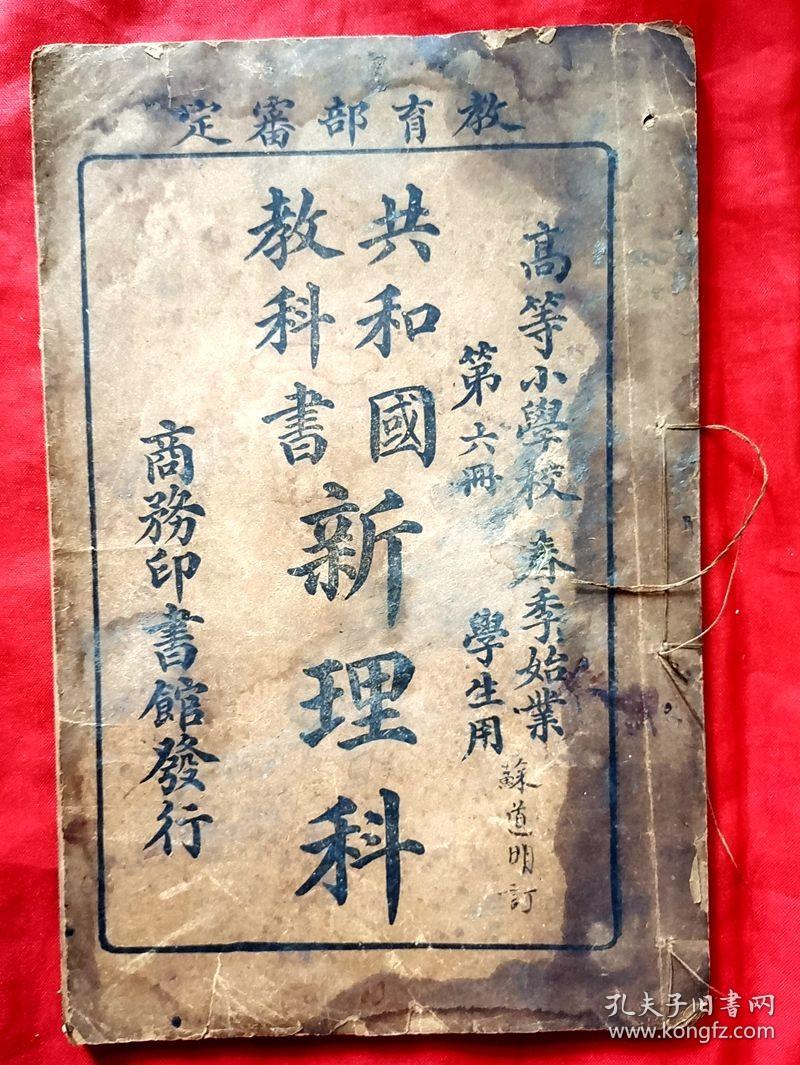 教育部審定
高等小學校 春季始業
第六冊 學生用
蘇道明訂
共和國
教科書
新理科
商務印書館發行
孔夫子旧书网
www.kongfz.com